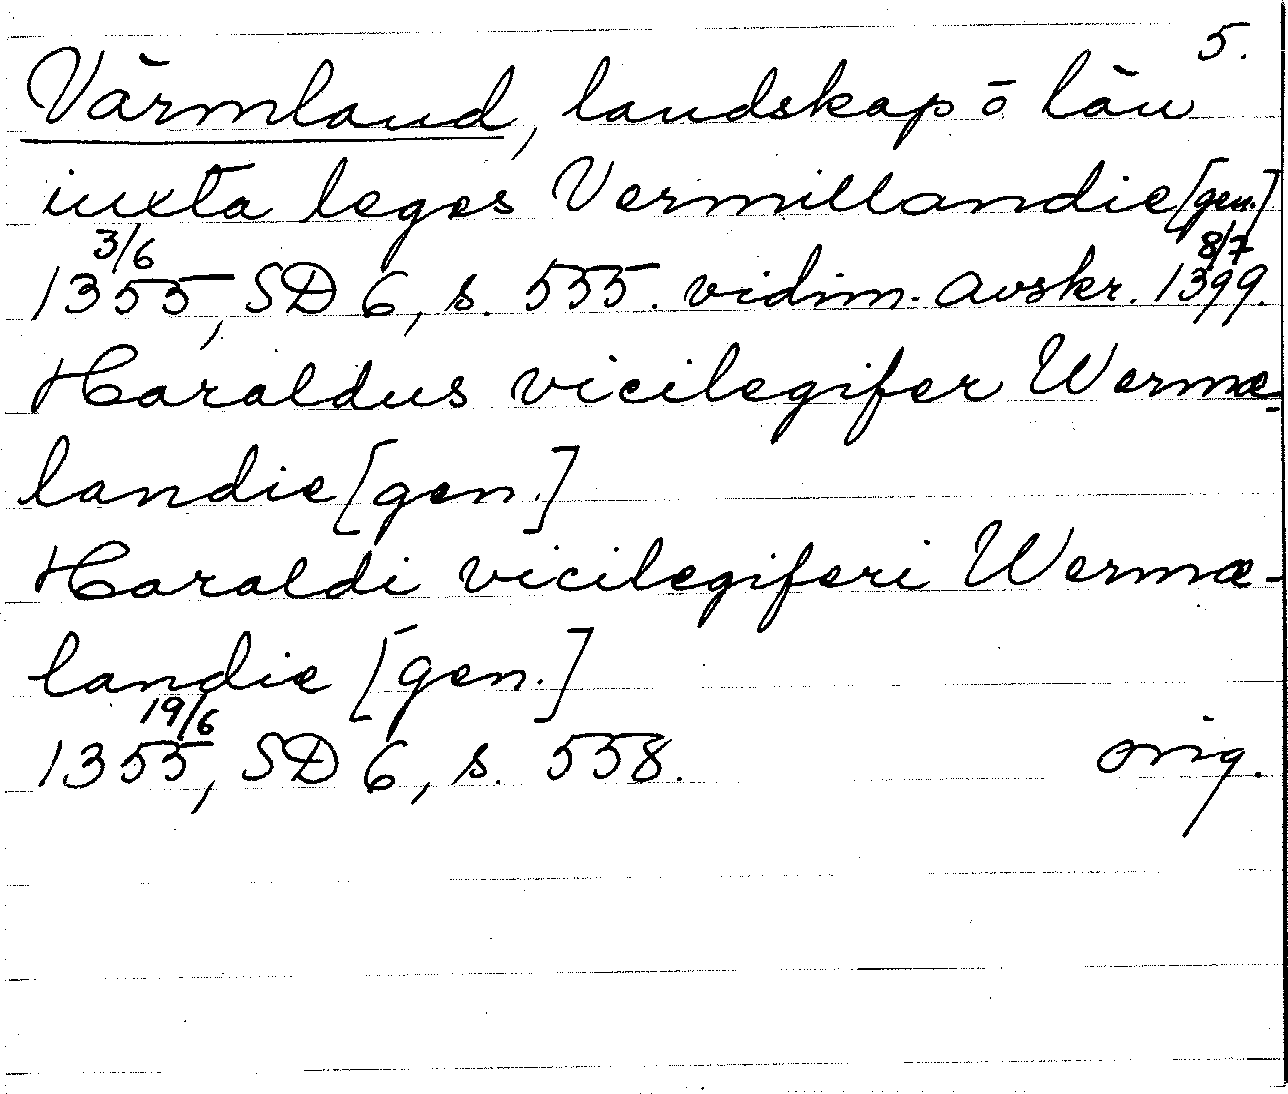 5.
Värmland, landskap o län
iuxta leges Vermillandie [gen.]
3/6 8/7
1355, SD 6, s. 555. vidim. avskr. 1399.
Haraldus vicilegifer Wermæ-
landie [gen.]
Haraldi vicilegiferi Wermæ-
landie [gen.]
19/6
1355, SD 6, s. 558. orig.